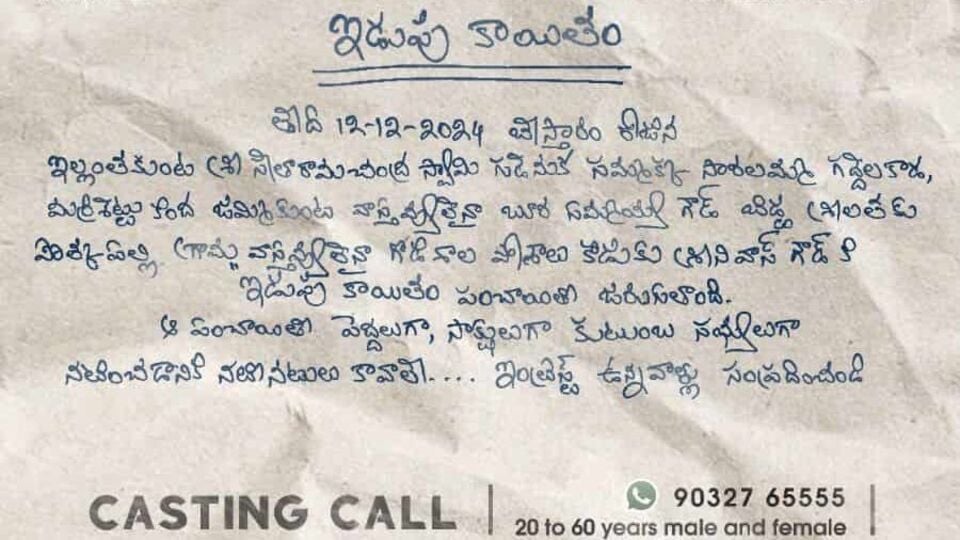 ఇడుపు కాయితం
తేది 12-12-2024 బేస్తారం రోజున
ఇల్లంతకుంట శ్రీ సీతారామచంద్ర స్వామి గుడెనుక సమ్మక్క సారలమ్మ గద్దెలకాడ,
మర్రిశెట్టు కింద జమ్మికుంట వాస్తవ్యులైనా బూర సమ్మయ్య గౌడ్ బిడ్డ శ్రీలతకు
గ్రామ వాస్తవ్యులైనా గోడిశాల పోశాలు కొడుకు శ్రీనివాస్ గౌడ్ కి
ఇడుపు కాయితం పంచాయితీ జరుగులాంది.
ఆ పంచాయితీలో పెద్దలుగా, సాక్షులుగా కుటుంబ సభ్యులుగా
నటించడానికి నటీనటులు కావాలి.... ఇంట్రెస్ట్ ఉన్నవాళ్లు సంప్రదించండి
CASTING CALL
90327 65555
20 to 60 years male and female